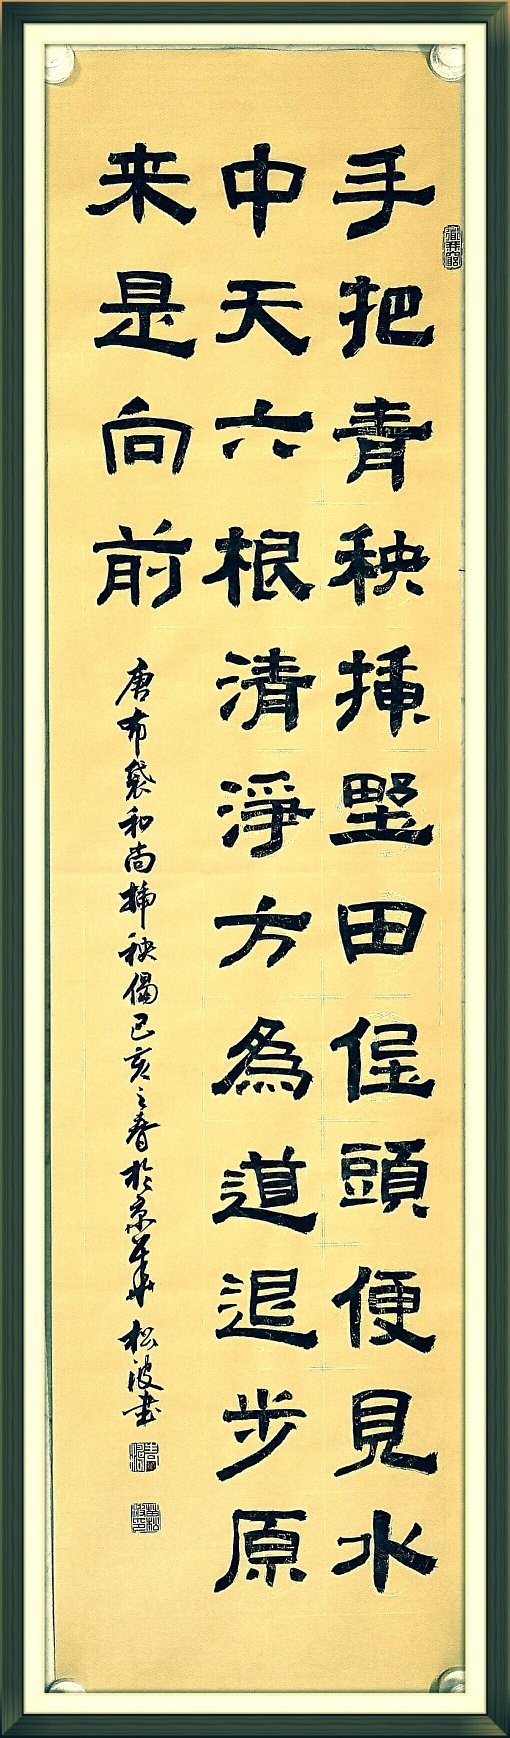 手把青秧插野田低頭便見水
中天六根清淨方為道退步原
来是向前
唐布袋和尚插秧偈己亥之春於京華松波書